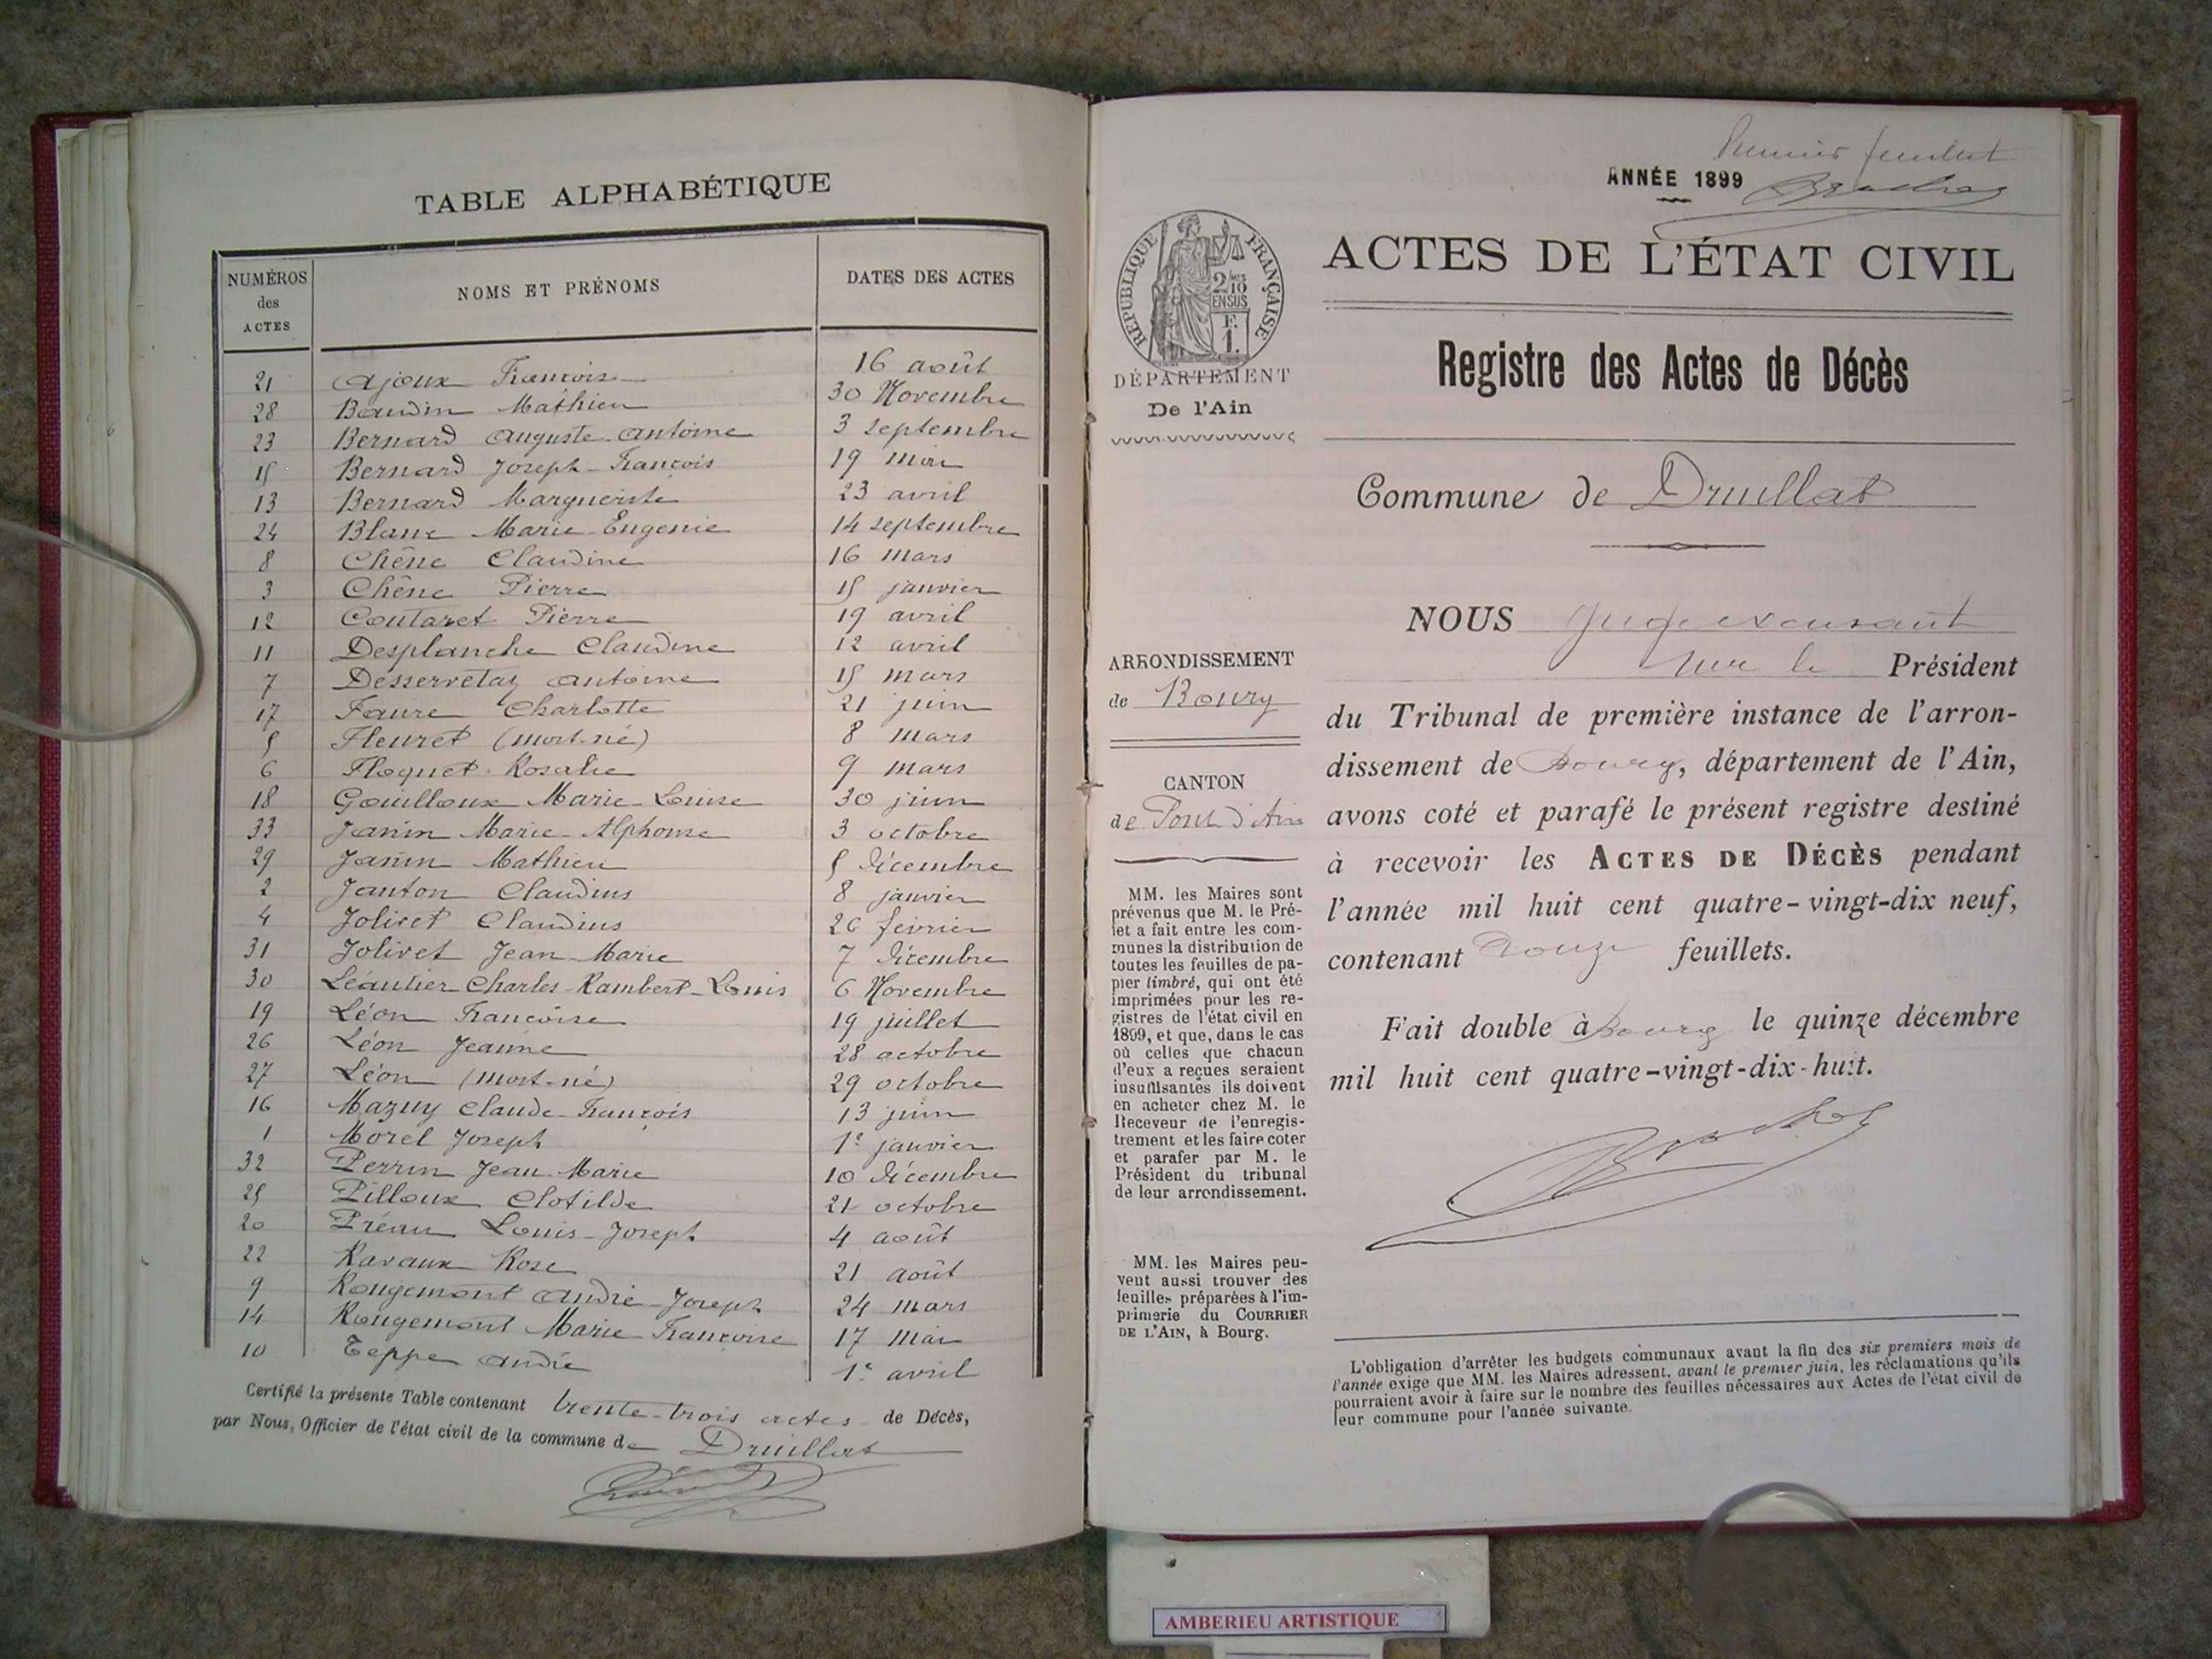 TABLE ALPHABÉTIQUE
NUMÉROS des ACTES NOMS ET PRÉNOMS DATES DES ACTES
21 Ajoux François 16 août
28 Baudin Mathieu 30 Novembre
23 Bernard Auguste-Antoine 3 septembre
15 Bernard Joseph-François 19 mai
13 Bernard Marguerite 23 avril
24 Blanc Marie-Eugenie 14 septembre
8 Chêne Claudine 16 mars
3 Chêne Pierre 15 janvier
12 Coutaret Pierre 19 avril
11 Desplanche Claudine 12 avril
7 Desservetaz Antoine 15 mars
17 Faure Charlotte 21 juin
5 Fleuret (mort-né) 8 mars
6 Floquet Rosalie 9 mars
18 Gouilloux Marie-Louise 30 juin
33 Janin Marie-Alphonse 3 octobre
29 Janin Mathieu 5 décembre
2 Janton Claudius 8 janvier
4 Jolivet Claudius 26 février
31 Jolivet Jean-Marie 7 décembre
30 Léautier Charles-Rambert-Louis 6 Novembre
19 Léon Françoise 19 juillet
26 Léon Jeanne 28 octobre
27 Léon (mort-né) 29 octobre
16 Mazuy Claude-François 13 juin
1 Morel Joseph 1er janvier
32 Perrin Jean-Marie 10 décembre
25 Pilloux Clotilde 21 octobre
20 Préau Louis-Joseph 4 août
22 Ravaux Rose 21 août
9 Rougemont André-Joseph 24 mars
14 Rougemont Marie-Françoise 17 mai
10 Teppe André 1er avril
Certifié la présente Table contenant trente-trois actes de Décès,
par Nous, Officier de l'état civil de la commune de Druillat
Premier feuillet
ANNÉE 1899
RÉPUBLIQUE FRANÇAISE
2/10 MES
EN SUS
F.
1.
ACTES DE L'ÉTAT CIVIL
DÉPARTEMENT
De l'Ain
Registre des Actes de Décès
Commune de Druillat
ARRONDISSEMENT
de Bourg
CANTON
de Pont d'Ain
MM. les Maires sont
prévenus que M. le Pré-
fet a fait entre les com-
munes la distribution de
toutes les feuilles de pa-
pier timbré, qui ont été
imprimées pour les re-
gistres de l'état civil en
1899, et que, dans le cas
où celles que chacun
d'eux a reçues seraient
insuffisantes ils doivent
en acheter chez M. le
Receveur de l'enregis-
trement et les faire coter
et parafer par M. le
Président du tribunal
de leur arrondissement.
MM. les Maires peu-
vent aussi trouver des
feuilles préparées à l'im-
primerie du COURRIER
DE L'AIN, à Bourg.
NOUS Juge
le Président
du Tribunal de première instance de l'arron-
dissement de Bourg, département de l'Ain,
avons coté et parafé le présent registre destiné
à recevoir les ACTES DE DÉCÈS pendant
l'année mil huit cent quatre-vingt-dix neuf,
contenant douze feuillets.
Fait double à Bourg le quinze décembre
mil huit cent quatre-vingt-dix-huit.
L'obligation d'arrêter les budgets communaux avant la fin des six premiers mois de
l'année exige que MM. les Maires adressent, avant le premier juin, les réclamations qu'ils
pourraient avoir à faire sur le nombre des feuilles nécessaires aux Actes de l'état civil de
leur commune pour l'année suivante.
AMBERIEU ARTISTIQUE